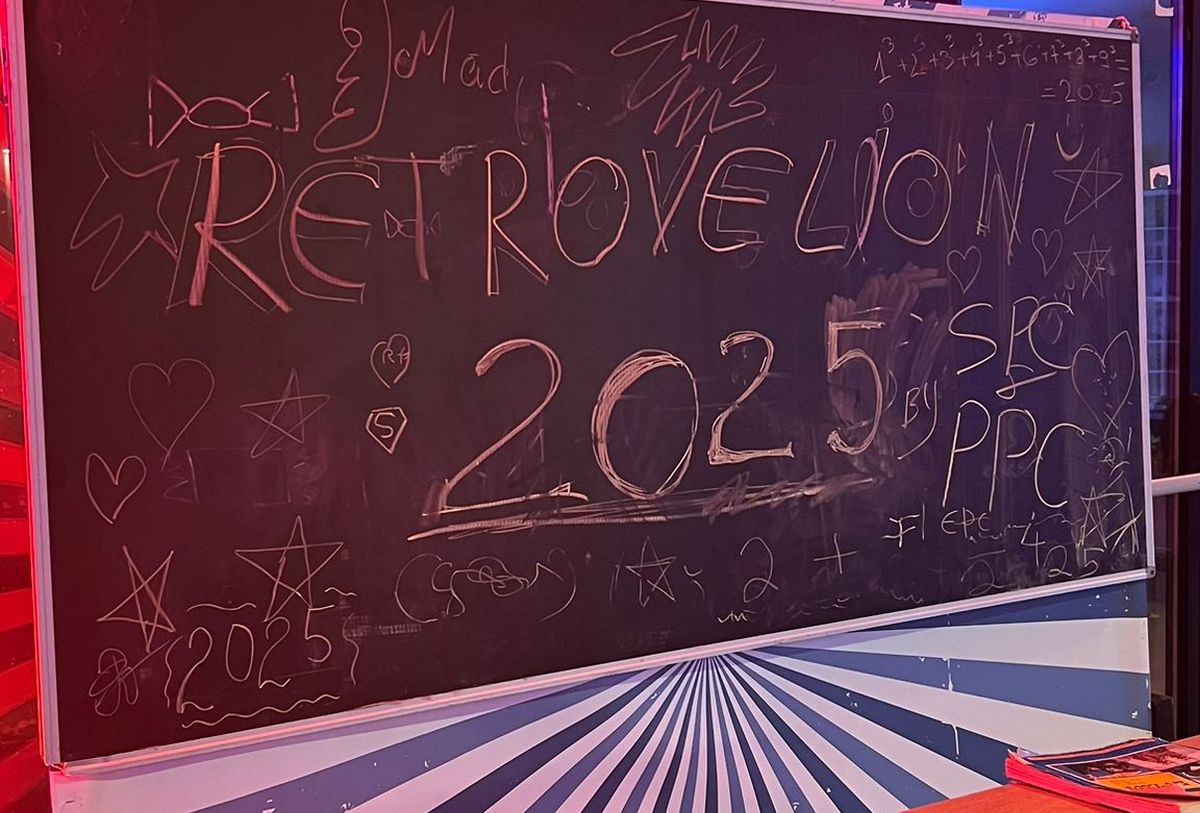 Mad
1³+2³+3³+4³+5³+6³+7³+8³+9³=
=2025
RETROVELION
2025
BY
SPC
PPC
S
2025
2 +